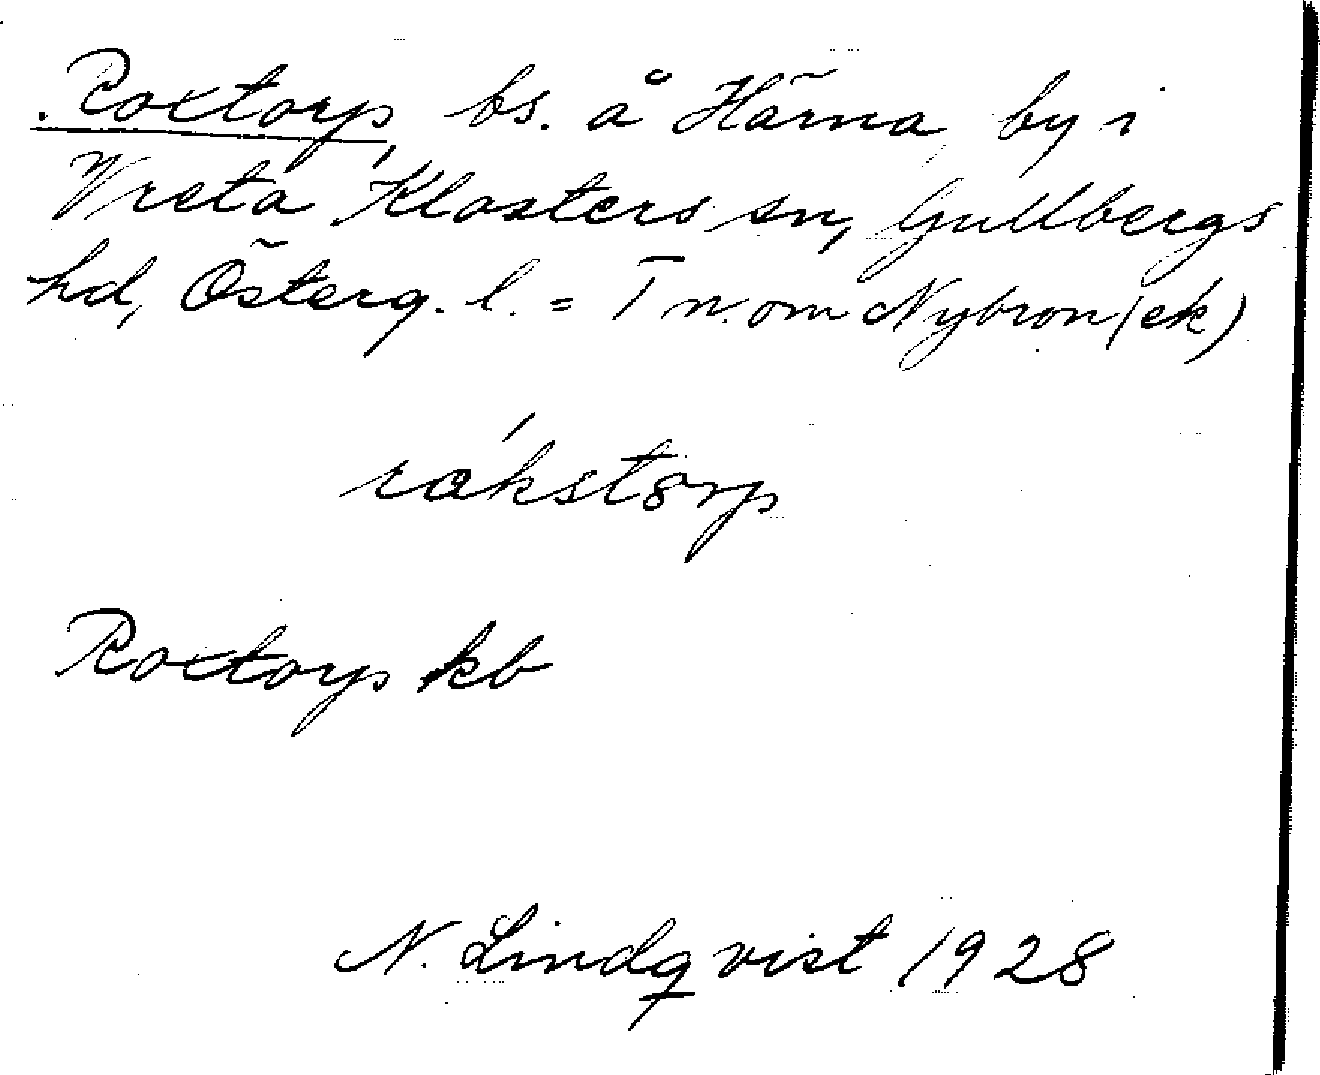 Roxtorp, bs. å Härna, by i
Vreta Klosters sn, Gullbergs
hd, Österg. l. = T n. om Nybron (ek)
rákstɔrp
Roxtorp kb
N. Lindqvist 1928